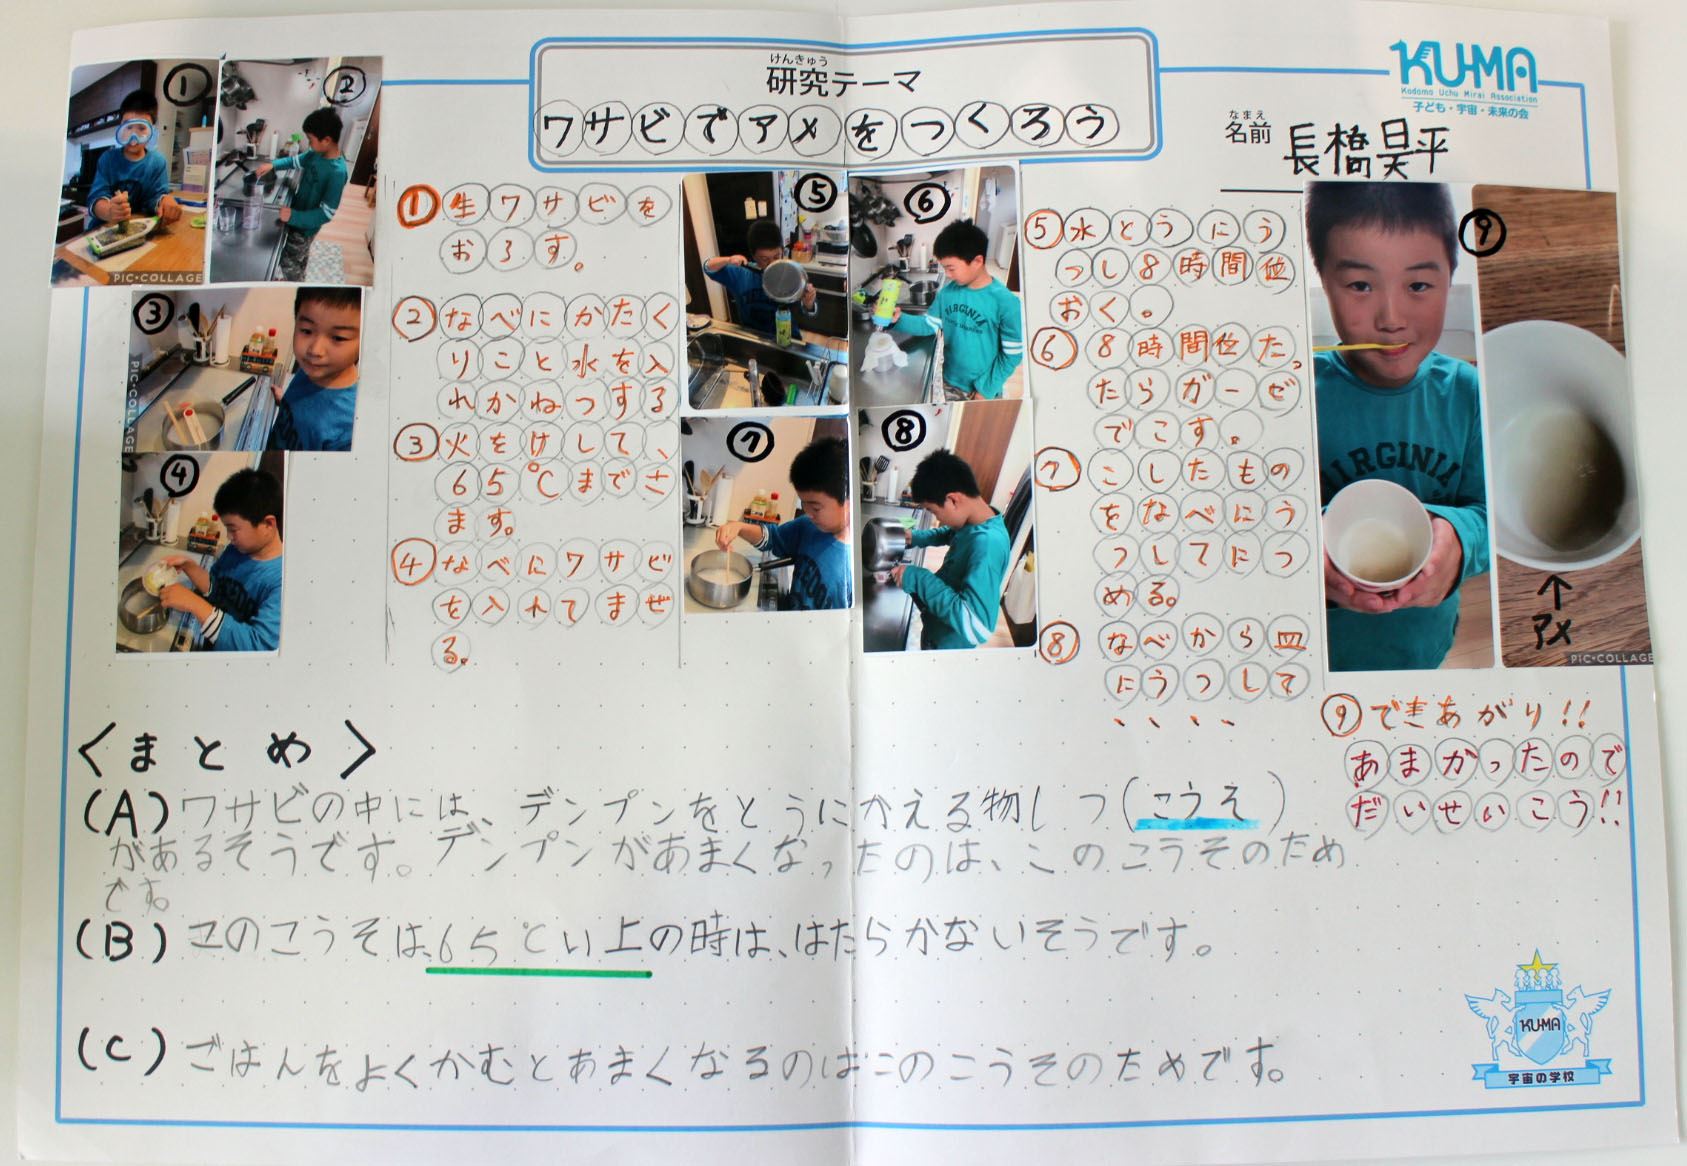 けんきゅう
研究テーマ
ワサビでアメをつくろう
KU-MA
Kodomo Uchu Mirai Association
子ども・宇宙・未来の会
なまえ
名前 長橋昊平
①
②
PIC・COLLAGE
③
PIC・COLLAGE
④
① 生ワサビを
おろす。
② なべにかたく
りこと水を入
れかねつする
③ 火をけして、
65℃までさ
ます。
④ なべにワサビ
を入れてまぜ
る。
⑤
⑥
⑦
⑧
⑤ 水とうにう
つし8時間位
おく。
⑥ 8時間位たっ
たらガーゼ
でこす。
⑦ こしたもの
をなべにう
つしてにつ
める。
⑧ なべから皿
にうつして
、、、、
⑨
↑
アメ
PIC・COLLAGE
⑨ できあがり!!
あまかったので
だいせいこう!!
〈まとめ〉
(A) ワサビの中には、デンプンをとうにかえる物しつ(こうそ)
があるそうです。デンプンがあまくなったのは、このこうそのため
です。
(B) このこうそは、65℃い上の時は、はたらかないそうです。
(C) ごはんをよくかむとあまくなるのはこのこうそのためです。
KU-MA
宇宙の学校